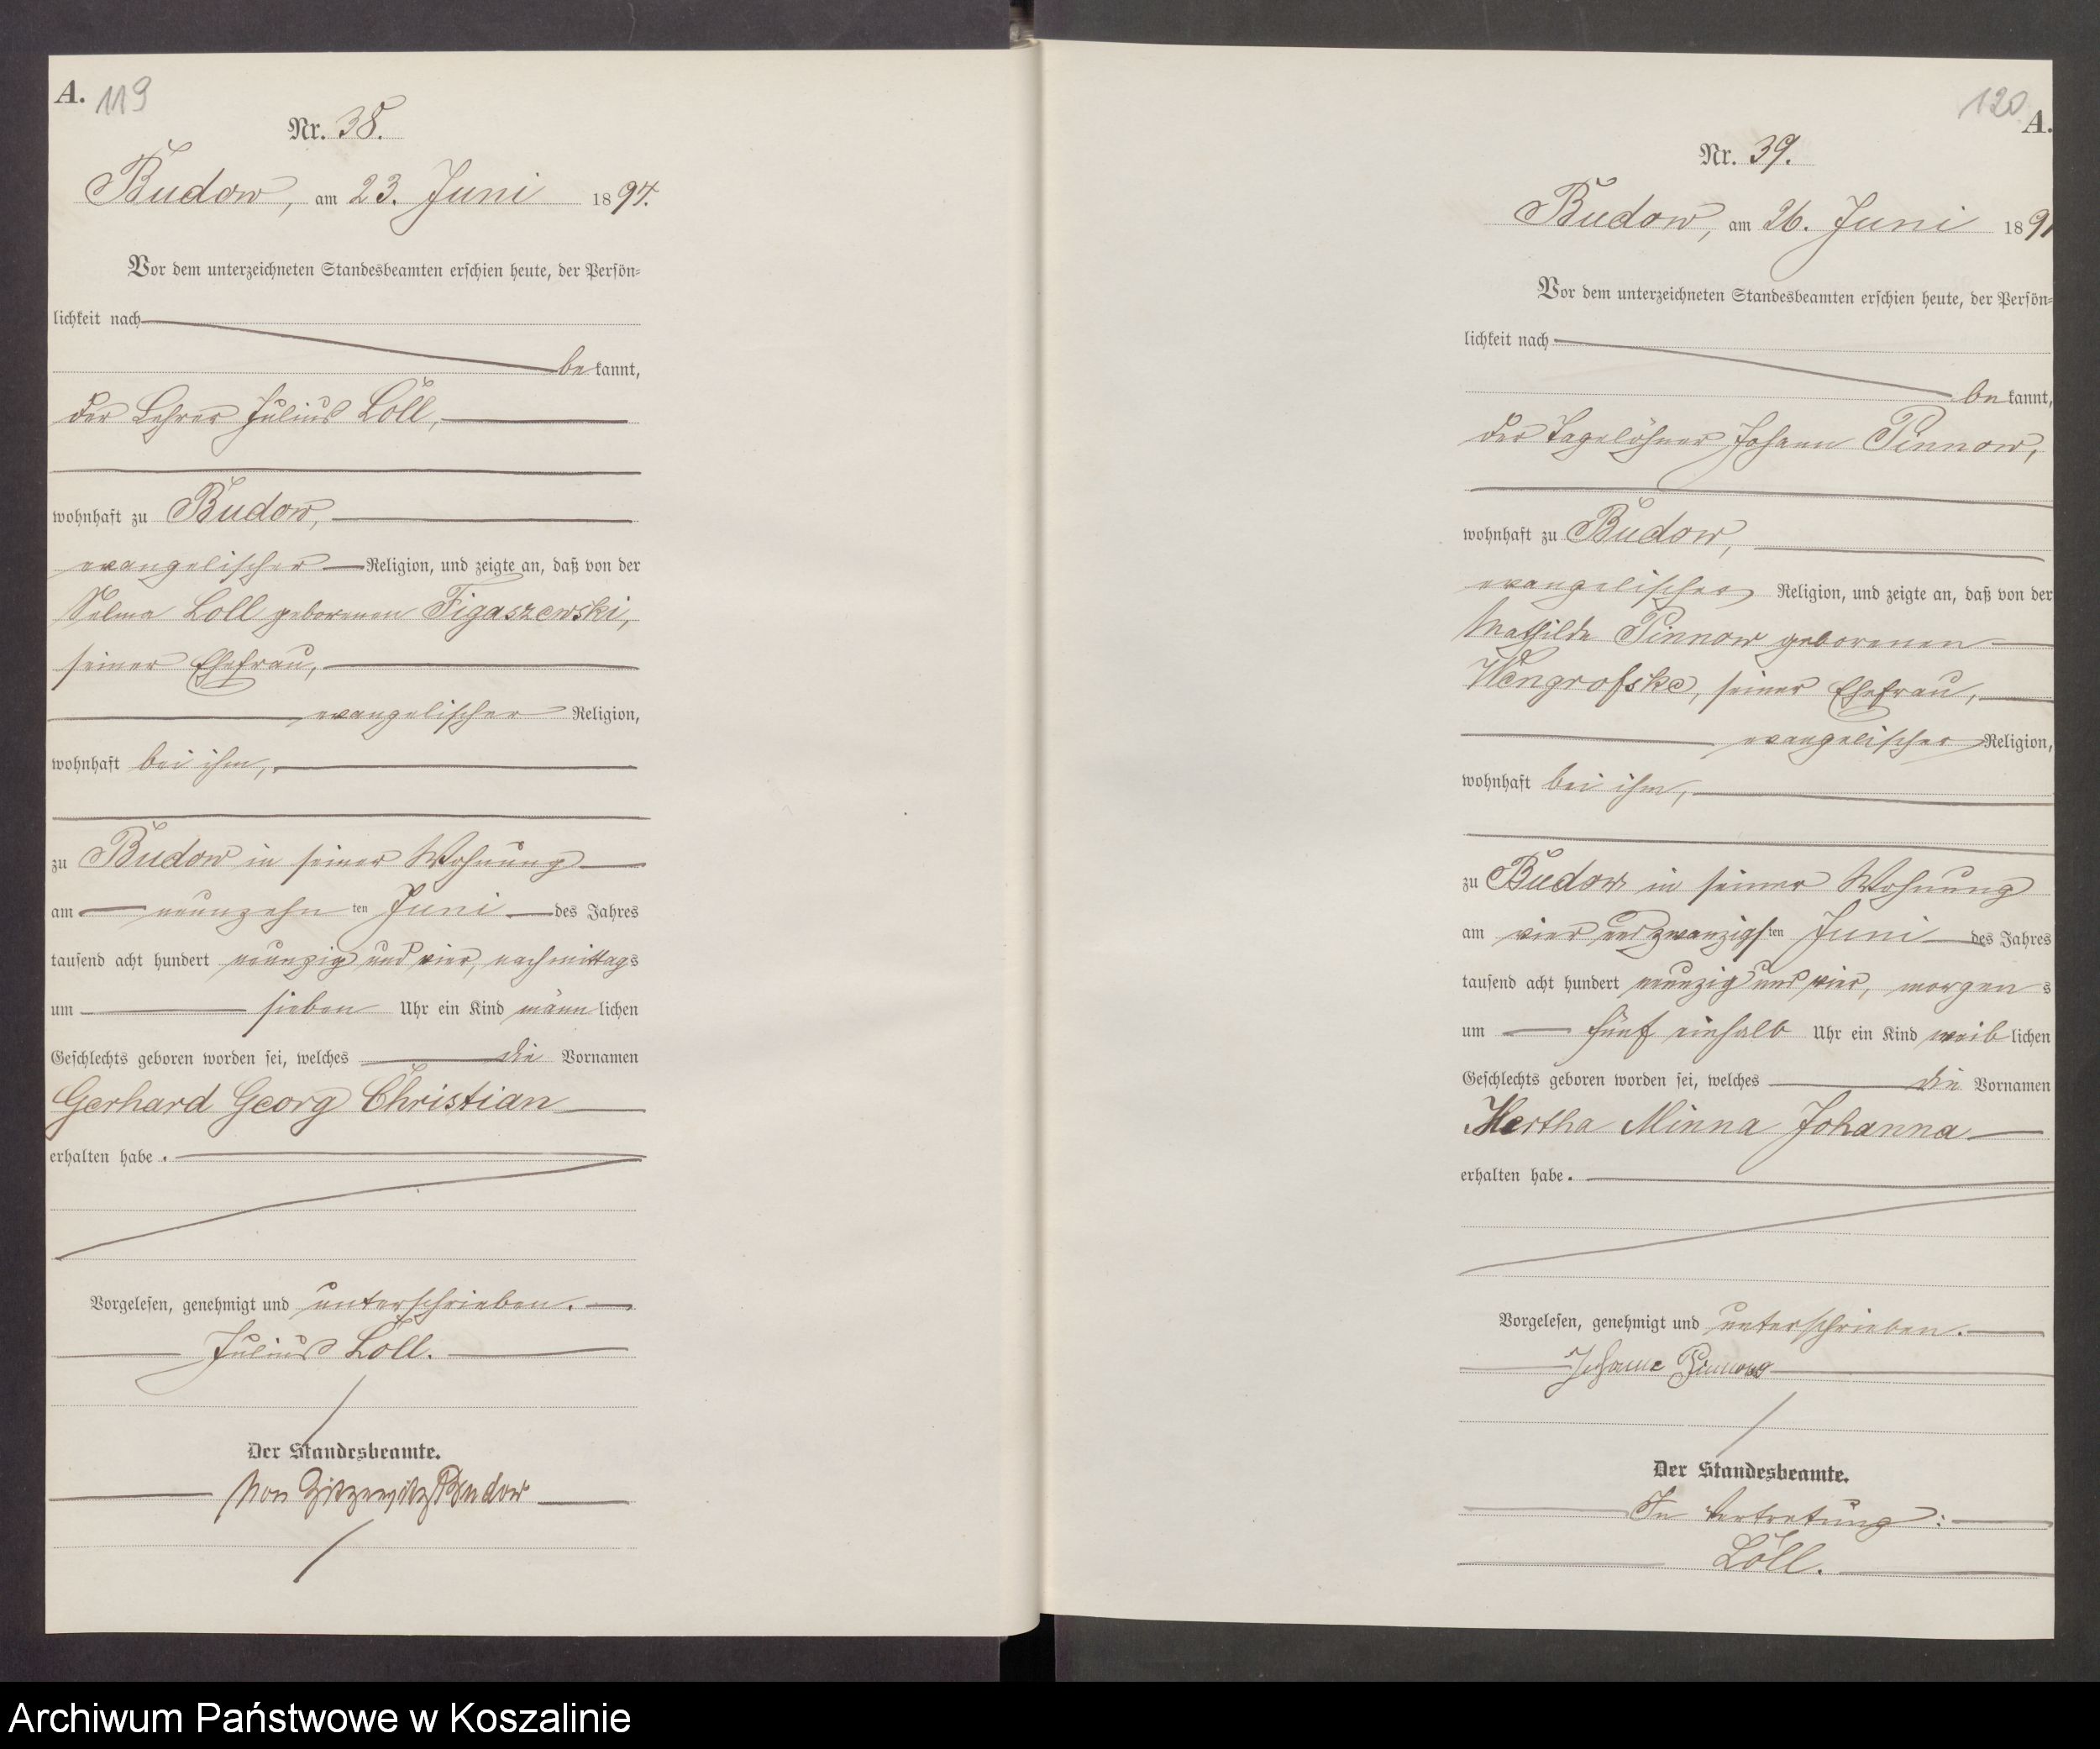 A. 119
Nr. 38.
Budow, am 23. Juni 1894.
Vor dem unterzeichneten Standesbeamten erschien heute, der Persön=
lichkeit nach
bekannt,
der Lehrer Julius Loll,
wohnhaft zu Budow,
evangelischer Religion, und zeigte an, daß von der
Selma Loll geborenen Figaszewski,
seiner Ehefrau,
evangelischer Religion,
wohnhaft bei ihm,
zu Budow in seiner Wohnung
am neunzehnten Juni des Jahres
tausend acht hundert neunzig und vier, nachmittags
um sieben Uhr ein Kind männlichen
Geschlechts geboren worden sei, welches die Vornamen
Gerhard Georg Christian
erhalten habe.
Vorgelesen, genehmigt und unterschrieben.
Julius Loll.
Der Standesbeamte.
von Zitzewitz Budow
120
A.
Nr. 39.
Budow, am 26. Juni 189
Vor dem unterzeichneten Standesbeamten erschien heute, der Persön=
lichkeit nach
bekannt,
der Tagelöhner Johann Pinnow,
wohnhaft zu Budow,
evangelischer Religion, und zeigte an, daß von der
Mathilde Pinnow geborenen
Wengrofske, seiner Ehefrau,
evangelischer Religion,
wohnhaft bei ihm,
zu Budow in seiner Wohnung
am vier und zwanzigsten Juni des Jahres
tausend acht hundert neunzig und vier, morgens
um fünf einhalb Uhr ein Kind weiblichen
Geschlechts geboren worden sei, welches die Vornamen
Hertha Minna Johanna
erhalten habe.
Vorgelesen, genehmigt und unterschrieben.
Johann Pinnow
Der Standesbeamte.
In Vertretung:
Loll.
Archiwum Państwowe w Koszalinie